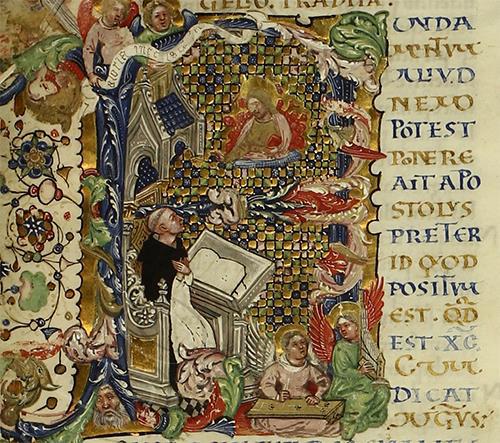 GELO. TRADITA.
FUNDA
MENTUM
ALIUD
NEMO
POTEST
PONERE
AIT APO
STOLUS
PRETER
ID QUOD
POSITUM
EST. QD
EST. XC
CUM
DICAT
AUGUS: